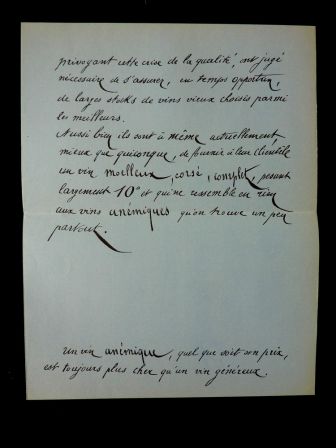 prévoyant cette crise de la qualité, ont jugé
nécessaire de s'assurer, en temps opportun,
de larges stocks de vins vieux choisis parmi
les meilleurs.
Aussi bien ils sont à même actuellement
mieux que quiconque, de fournir à leur clientèle
un vin moelleux, corsé, complet, pesant
largement 10° et qui ne ressemble en rien
aux vins anémiques qu'on trouve un peu
partout.
Un vin anémique, quel que soit son prix,
est toujours plus cher qu'un vin généreux.